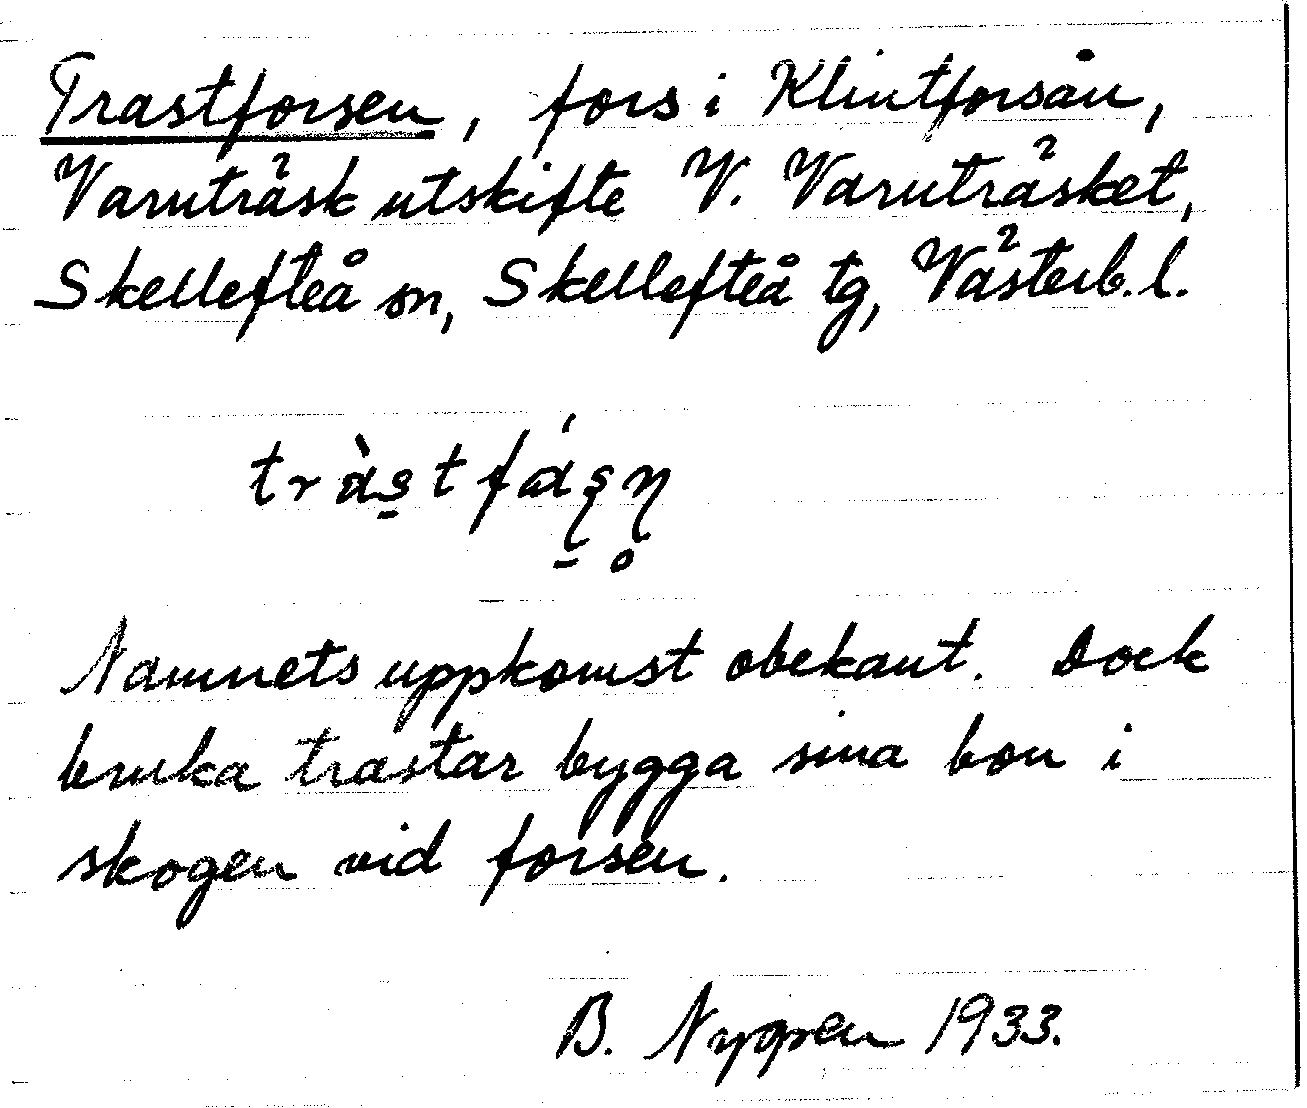 Trastforsen, fors i Klintforsån,
Varuträsk utskifte V. Varuträsket,
Skellefteå sn, Skellefteå tg, Västerb. l.
Namnets uppkomst obekant. Dock
bruka trastar bygga sina bon i
skogen vid forsen.
B. Nygren 1933.